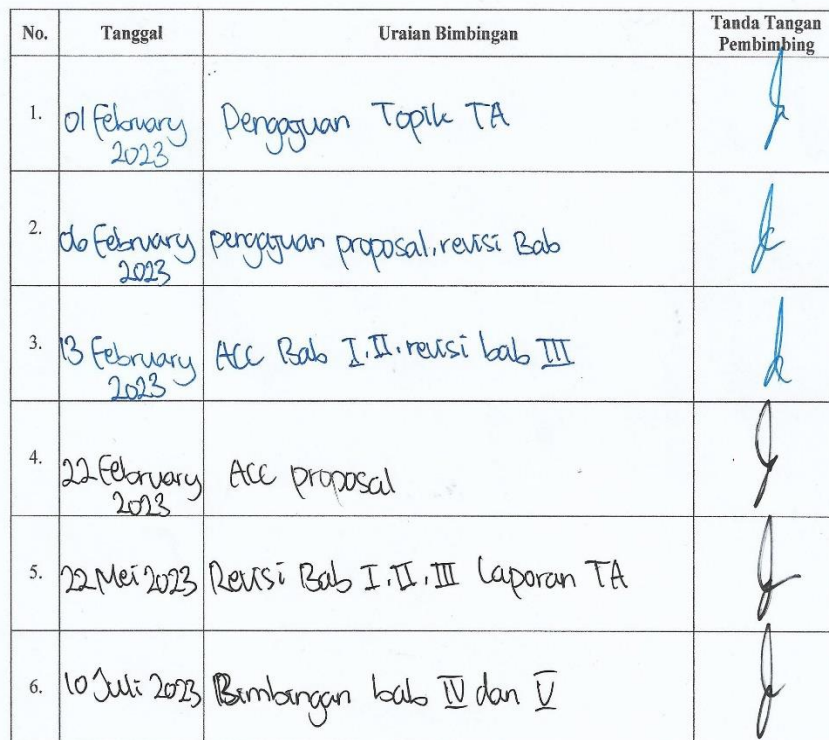 No. Tanggal Uraian Bimbingan Tanda Tangan
Pembimbing
1. 01 February Pengajuan Topik TA
2023
2. 06 February pengajuan proposal, revisi Bab
2023
3. 13 February ACC Bab I, II, revisi bab III
2023
4. 22 February ACC proposal
2023
5. 22 Mei 2023 Revisi Bab I, II, III Laporan TA
6. 10 Juli 2023 Bimbingan bab IV dan V